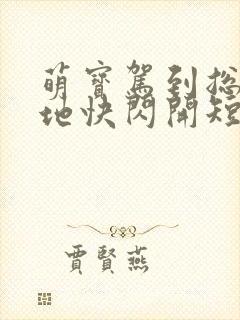 萌寶駕到總
地快閃開短
賈賢燕